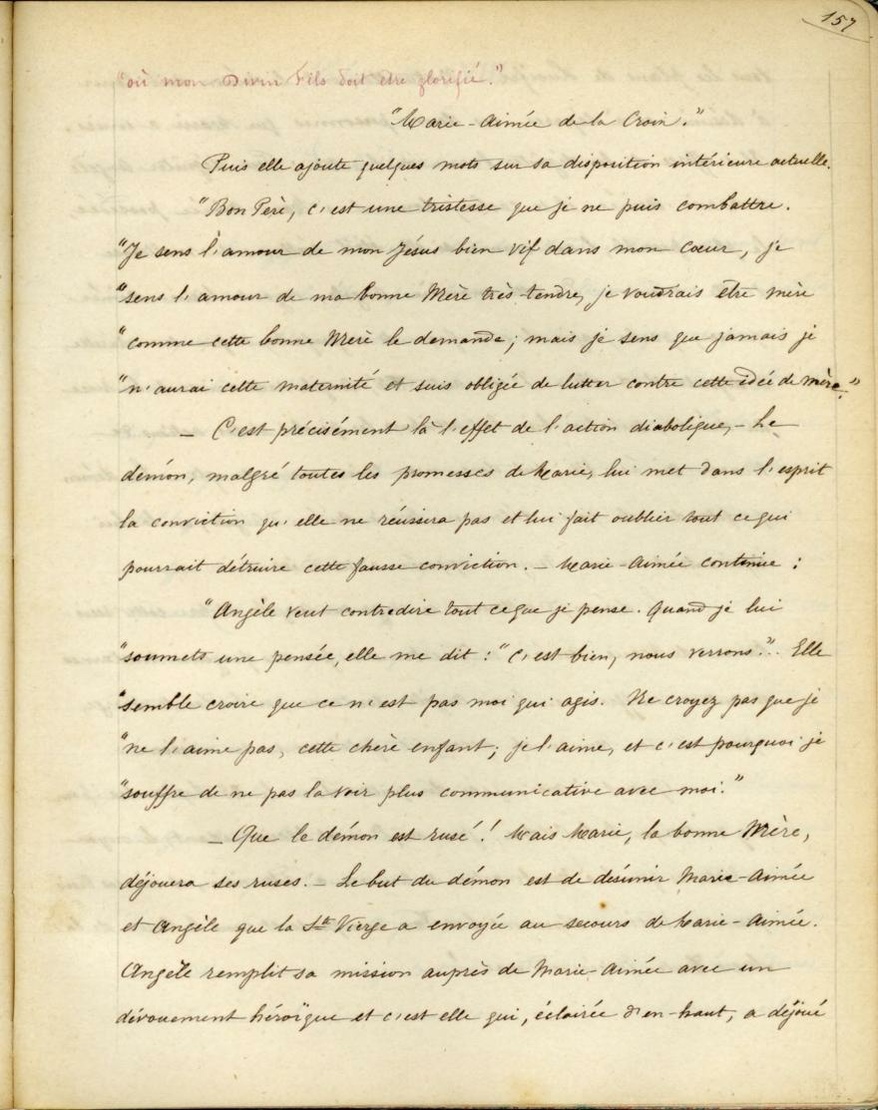 157
"où mon Divin Fils doit être glorifié."
"Marie-Aimée de la Croix."
Puis elle ajoute quelques mots sur sa disposition intérieure actuelle.
"Bon Père, c'est une tristesse que je ne puis combattre.
"Je sens l'amour de mon Jésus bien vif dans mon cœur, je
"sens l'amour de ma bonne Mère très-tendre, je voudrais être mère
"comme cette bonne Mère le demande; mais je sens que jamais je
"n'aurai cette maternité et suis obligée de lutter contre cette idée de mère."
— C'est précisément là l'effet de l'action diabolique, — Le
démon, malgré toutes les promesses de Marie, lui met dans l'esprit
la conviction qu'elle ne réussira pas et lui fait oublier tout ce qui
pourrait détruire cette fausse conviction. — Marie-Aimée continue :
"Angèle veut contredire tout ce que je pense. Quand je lui
"soumets une pensée, elle me dit : "C'est bien, nous verrons." . Elle
"semble croire que ce n'est pas moi qui agis. Ne croyez pas que je
"ne l'aime pas, cette chère enfant; je l'aime, et c'est pourquoi je
"souffre de ne pas la voir plus communicative avec moi."
— Que le démon est rusé ! Mais Marie, la bonne Mère,
déjouera ses ruses. — Le but du démon est de désunir Marie-Aimée
et Angèle que la Ste Vierge a envoyée au secours de Marie-Aimée.
Angèle remplit sa mission auprès de Marie-Aimée avec un
dévouement héroïque et c'est elle qui, éclairée d'en-haut, a déjoué